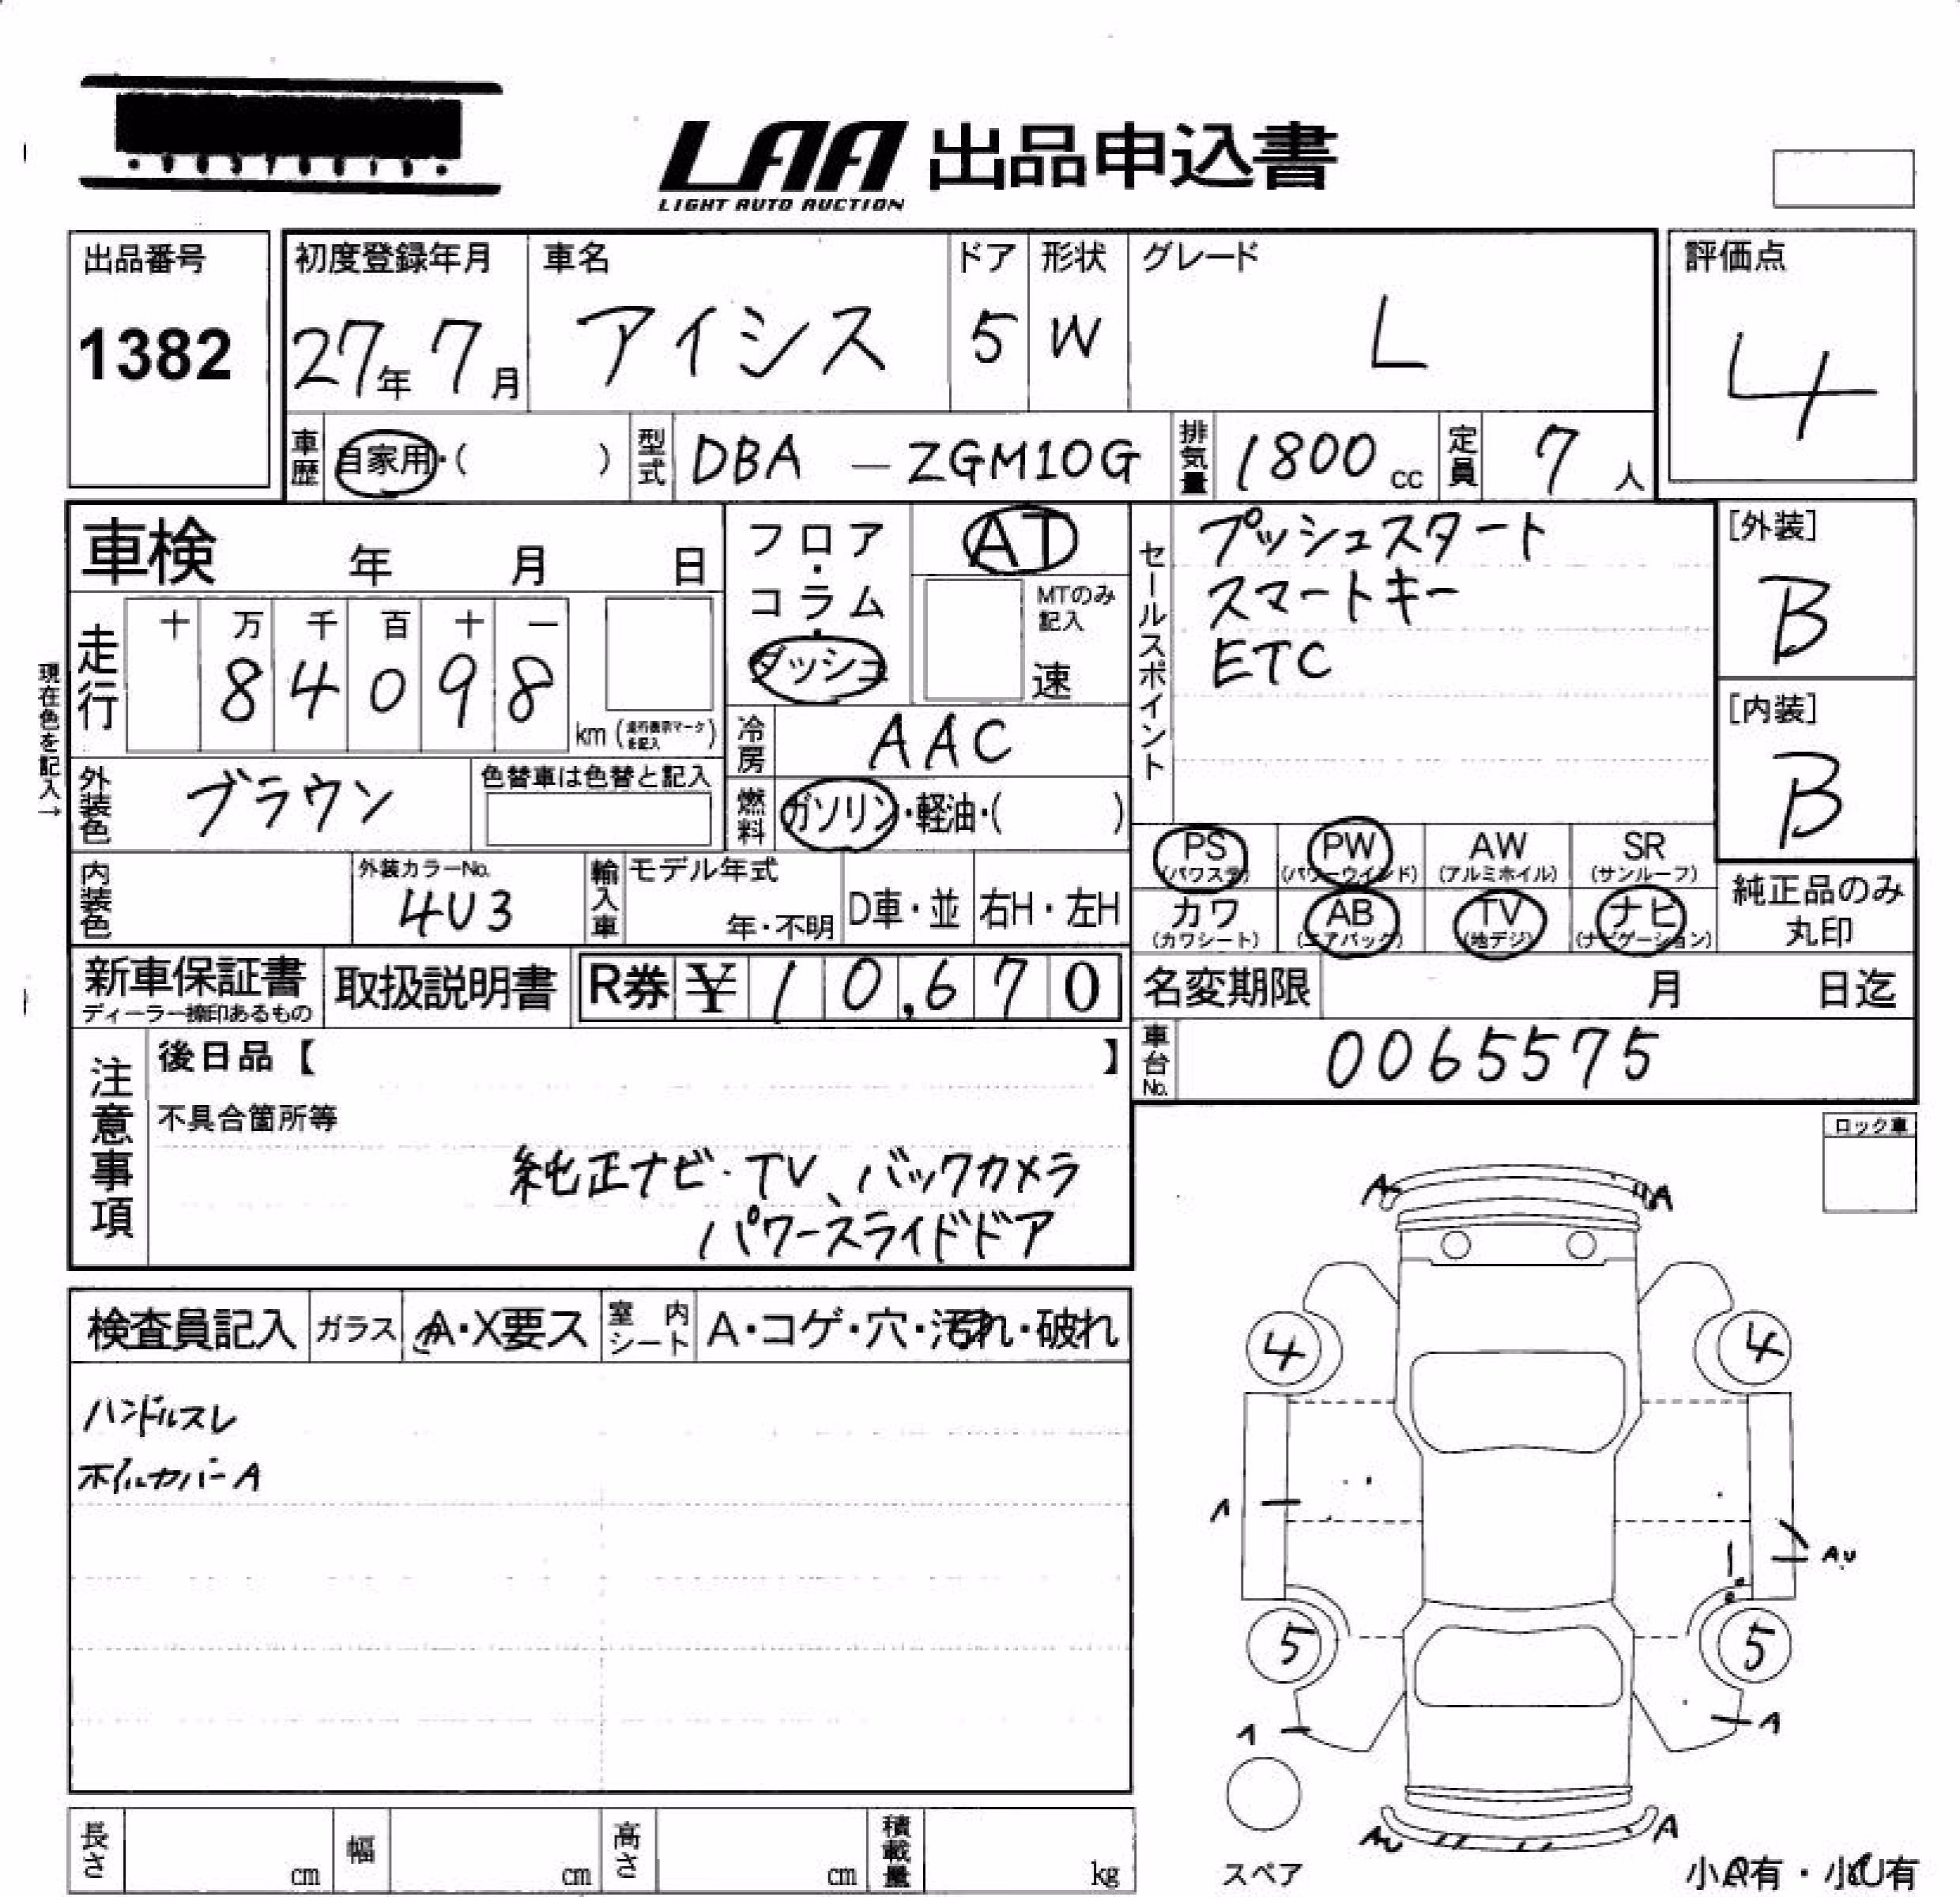 LAA 出品申込書
LIGHT AUTO AUCTION
出品番号
1382
初度登録年月
27年 7月
車名
アイシス
ドア
5
形状
W
グレード
L
評価点
4
車歴
自家用・( )
型式
DBA - ZGM10G
排気量
1800 cc
定員
7人
車検 年 月 日
フロア・コラム・ダッシュ
AT
MTのみ記入
速
セールスポイント
プッシュスタート
スマートキー
ETC
[外装]
B
[内装]
B
現在色を記入→
走行
十 万 千 百 十 一
8 4 0 9 8
km (走行表示マークを記入)
冷房
AAC
燃料
ガソリン・軽油・( )
外装色
ブラウン
色替車は色替と記入
内装色
外装カラーNo.
4U3
輸入車
モデル年式
年・不明
D車・並
右H・左H
PS (パワステ)
PW (パワーウインド)
AW (アルミホイル)
SR (サンルーフ)
カワ (カワシート)
AB (エアバック)
TV (地デジ)
ナビ (ナビゲーション)
純正品のみ
丸印
新車保証書
ディーラー捺印あるもの
取扱説明書
R券 ¥ 10,670
名変期限 月 日迄
車台No.
0065575
注意事項
後日品【 】
不具合箇所等
純正ナビ・TV、バックカメラ
パワースライドドア
ロック車
検査員記入
ガラス
A・X要ス
室内シート
A・コゲ・穴・汚れ・破れ
ハンドルスレ
ホイルカバーA
A A
4 4
A
AU
5 5
A A
AU A
スペア
小A有・小U有
長さ cm
幅 cm
高さ cm
積載量 kg